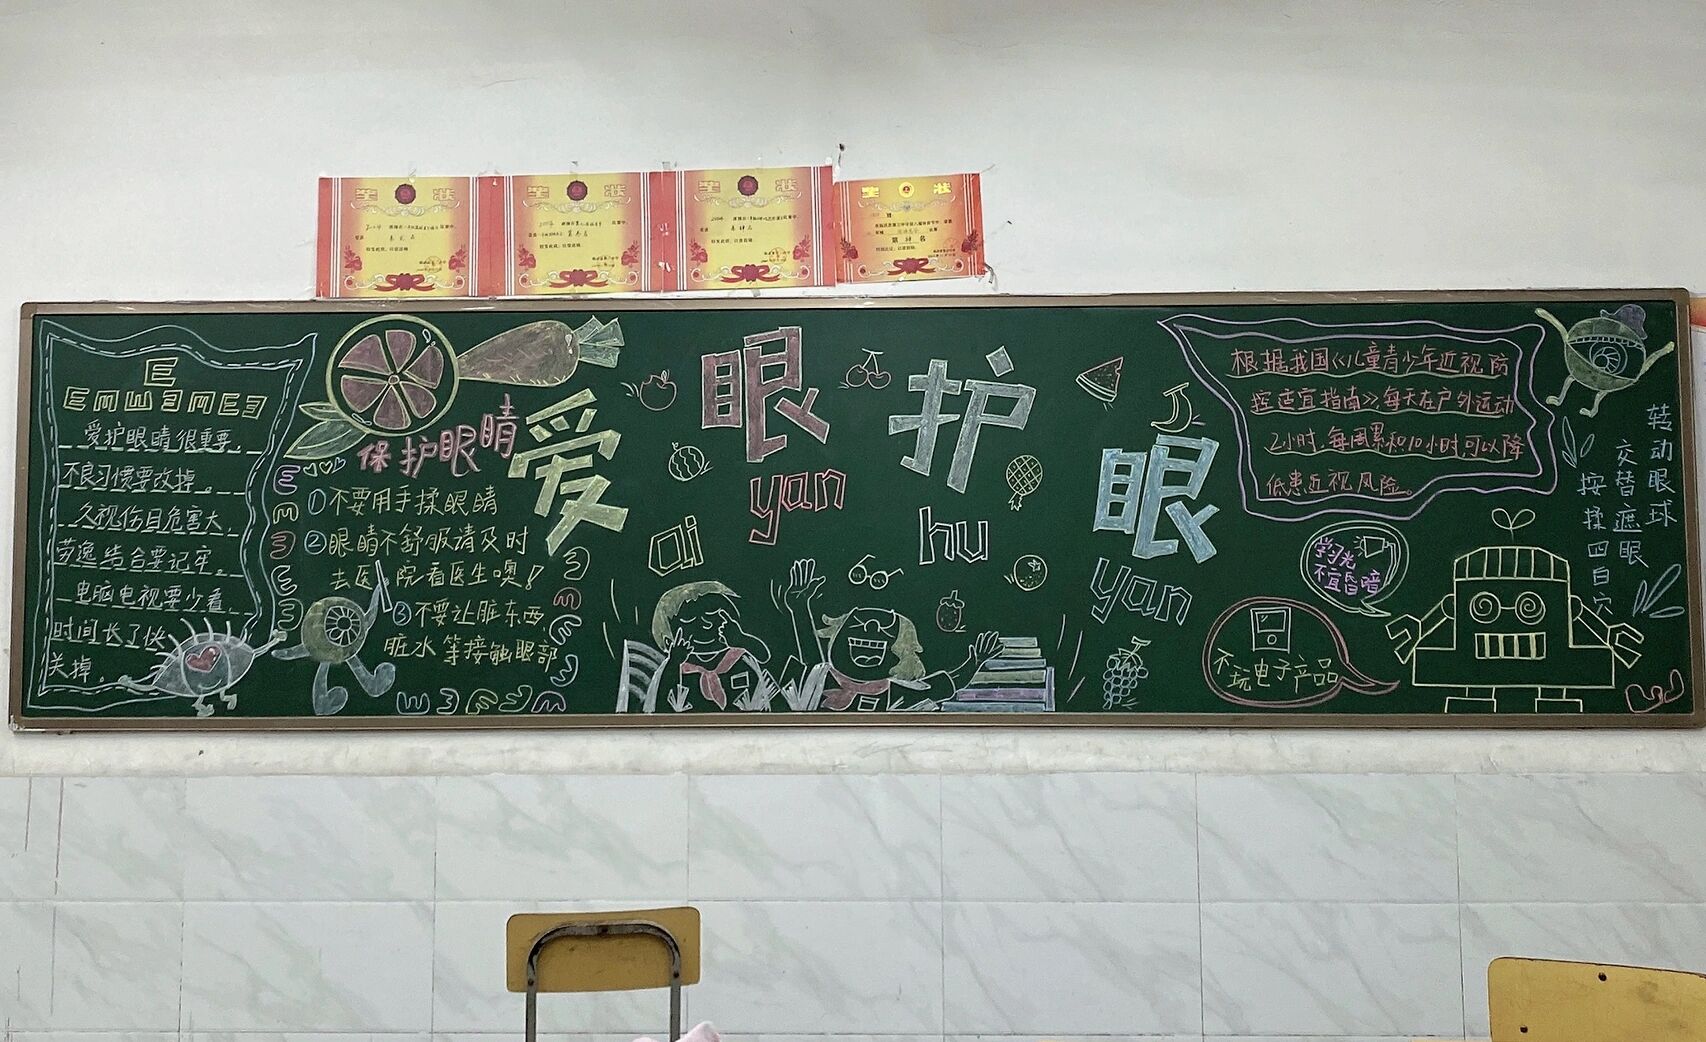 奖状
奖状
奖状
奖状
第 名
E
EMWƎMEƎ
爱护眼睛很重要，
不良习惯要改掉。
久视伤目危害大，
劳逸结合要记牢。
电脑电视要少看，
时间长了快
关掉。
保护眼睛
①不要用手揉眼睛
②眼睛不舒服请及时
去医院看医生噢！
③不要让脏东西
脏水等接触眼部
爱眼护眼
ai yan hu yan
根据我国《儿童青少年近视防
控适宜指南》每天在户外运动
2小时，每周累和10小时可以降
低患近视风险。
学习光
不宜昏暗
不玩电子产品
转动眼球
交替遮眼
按揉四白穴